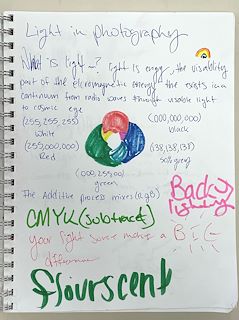 Light in photography
What is light —? light is enegy, the visability
part of the elcromagnetic energy the exists in a
continuum from radio waves through visable light
to cosmic
(255,255,255) (000,000,000)
White black
(255,000,000) (138,138,138)
Red 50% grey
(000,255,00)
green
The Additive process mixes (RGB)
Back
lighting
CMYK (subtract)
your light source make a BIG
difference
flourscent